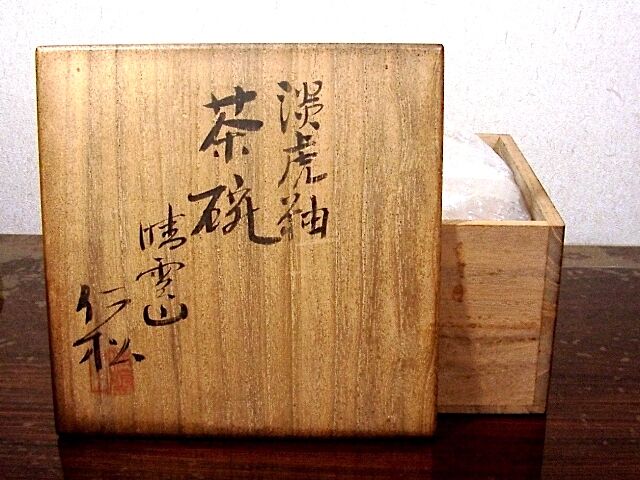 淡虎釉
茶碗
晴雲山
仁松